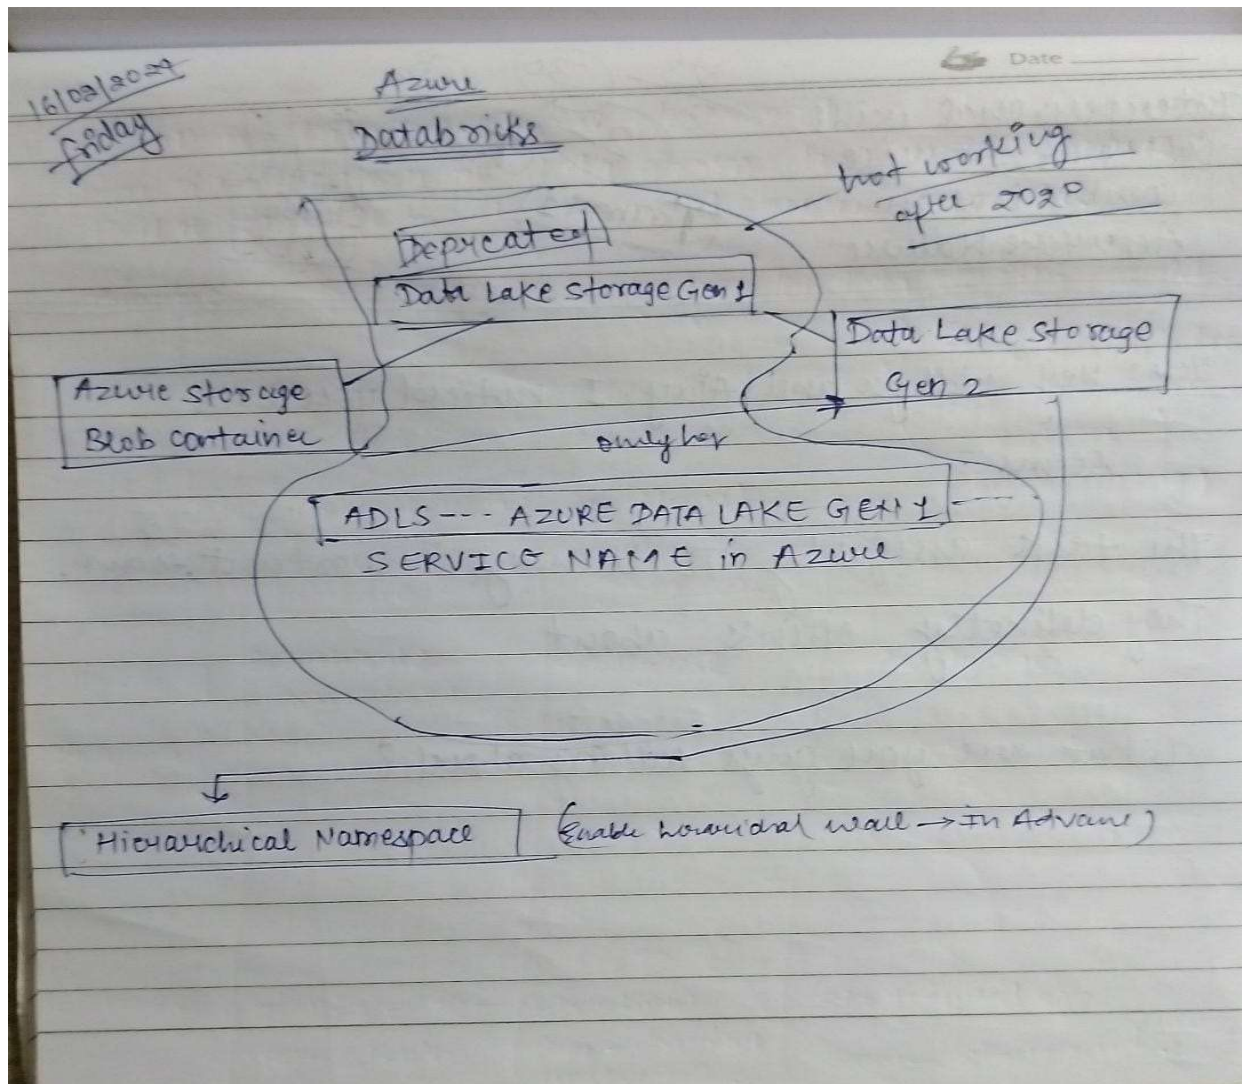 Date
16/02/2024
Friday
Azure
Databricks
not working
after 2020
Depricated
Data Lake Storage Gen 1
Data Lake Storage
Gen 2
Azure Storage
Blob container
only
ADLS--- AZURE DATA LAKE GEN 1
SERVICE NAME in Azure
Hierarchical Namespace
(Enable → In Advance)